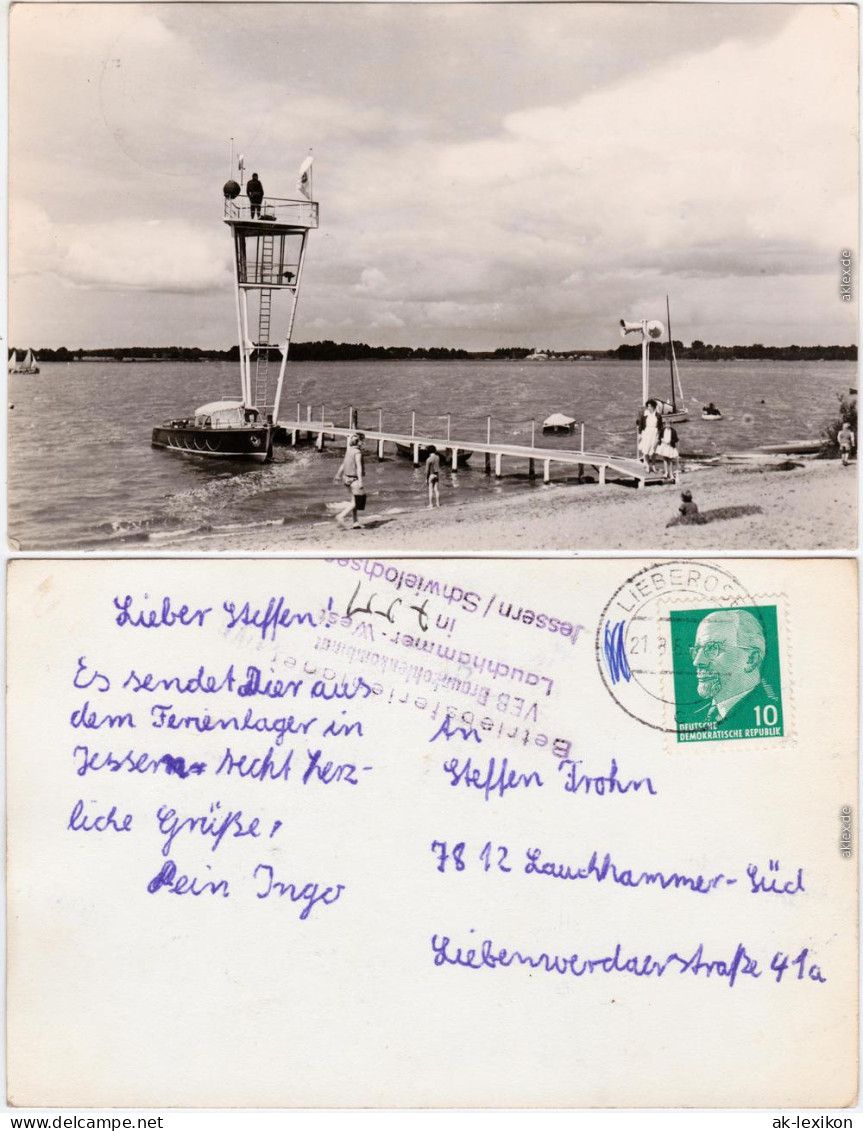 aklex.de
Lieber Steffen!
Es sendet Dier aus
dem Ferienlager in
Jessern recht herz-
liche Grüße,
Dein Ingo
Betriebsferienlager
VEB Braunkohlenkombinat
Lauchhammer-West
in 7511
Jessern / Schwielochsee
LIEBEROSE
DEUTSCHE
DEMOKRATISCHE REPUBLIK 10
An
Steffen Frohn
7812 Lauchhammer-Süd
Liebenwerdaerstraße 41a
aklex.de
www.delcampe.net
ak-lexikon